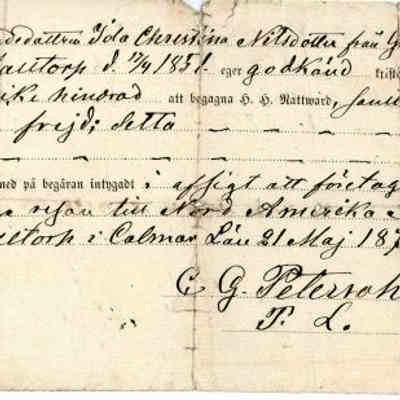 dedattren Ida Christina Nilsdotter från G
alltorp d. 17/4 1851. eger godkänd kristl
ike hindrad att begagna H. H. Nattward, samt
frejd; detta
med på begäran intygadt i afsigt att företag
a resan till Nord Amerika
lltorp i Calmar Län 21 Maj 187
C G. Peterson
P. L.